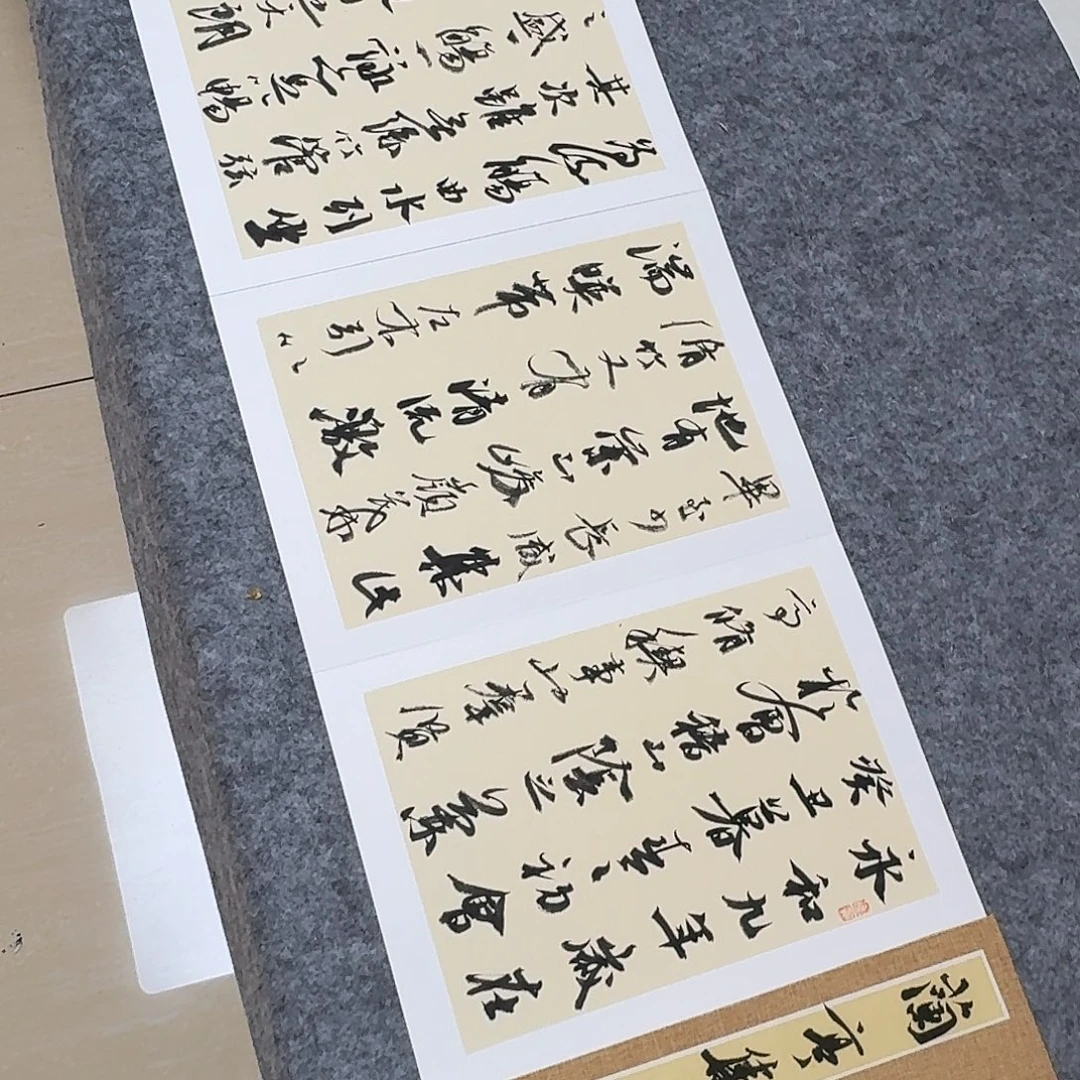 蘭亭集
永和九年歲在
癸丑暮春之初會
於會稽山陰之蘭
亭脩禊事也群賢
畢至少長咸集此
地有崇山峻領茂林
脩竹又有清流激
湍暎帶左右引以
為流觴曲水列坐
其次雖無絲竹管弦
之盛一觴一詠亦足以暢
也天朗